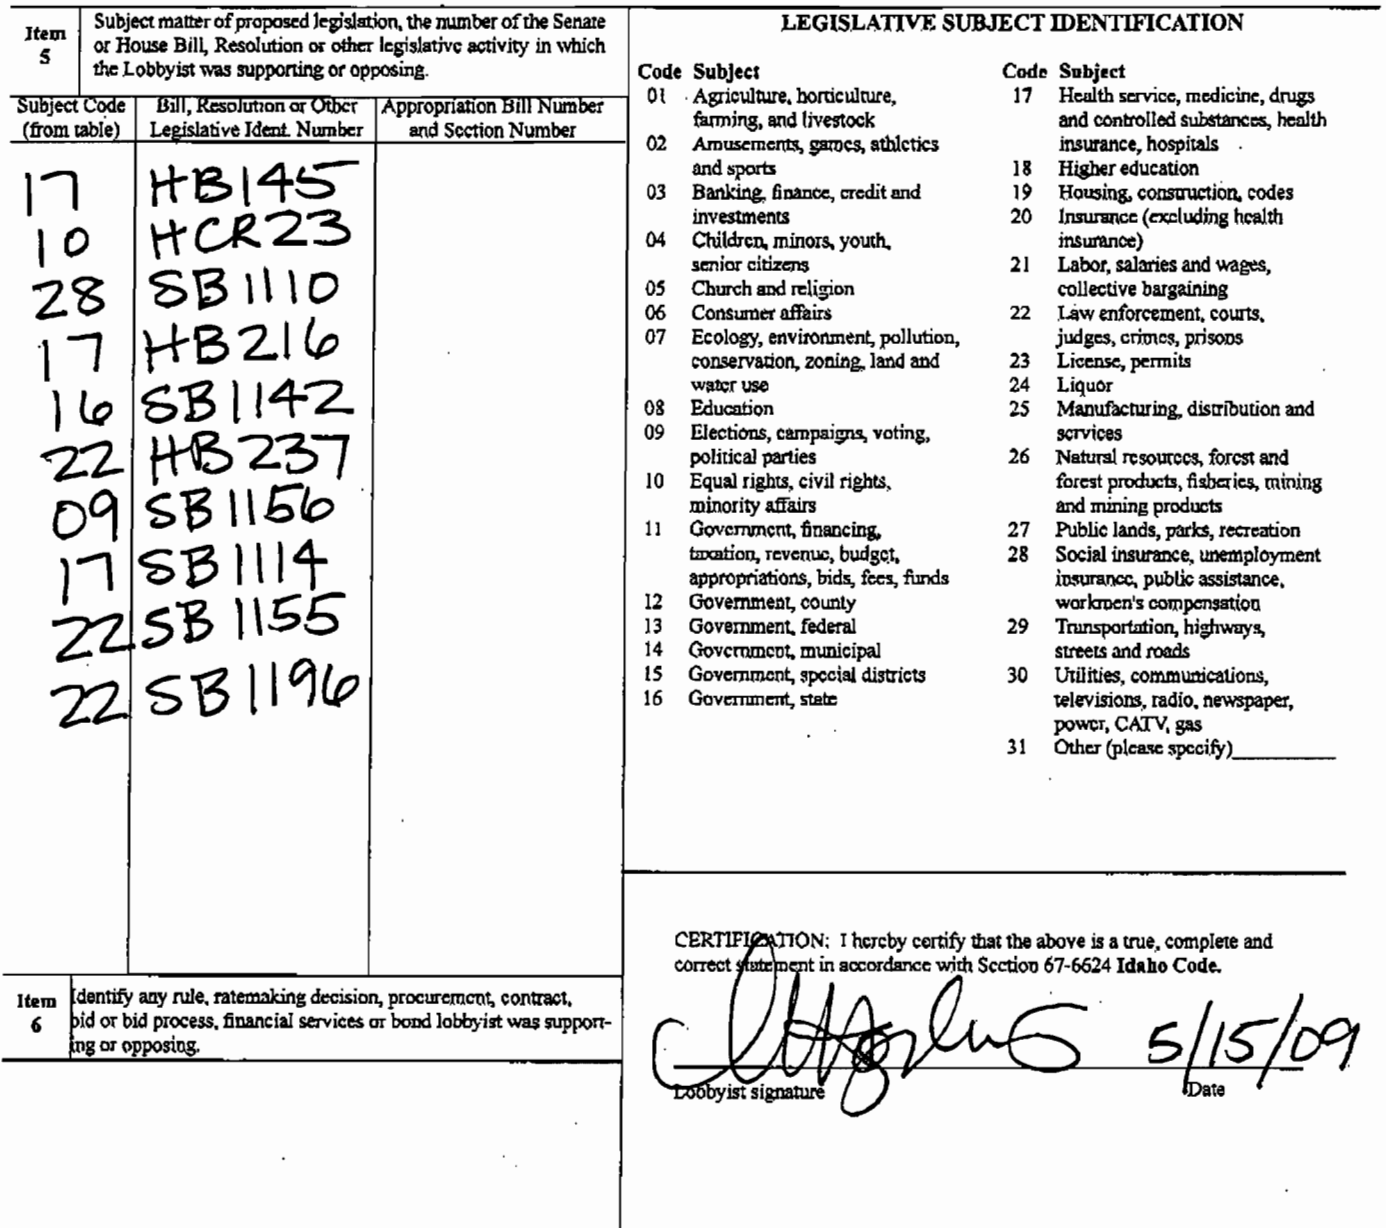 Item
5
Subject matter of proposed legislation, the number of the Senate
or House Bill, Resolution or other legislative activity in which
the Lobbyist was supporting or opposing.
Subject Code
(from table)
Bill, Resolution or Other
Legislative Ident. Number
Appropriation Bill Number
and Section Number
17 HB145
10 HCR23
28 SB1110
17 HB216
16 SB1142
22 HB237
09 SB1156
17 SB1114
22 SB1155
22 SB1196
Item
6
Identify any rule, ratemaking decision, procurement, contract,
bid or bid process, financial services or bond lobbyist was support-
ing or opposing.
LEGISLATIVE SUBJECT IDENTIFICATION
Code Subject
01 Agriculture, horticulture,
farming, and livestock
02 Amusements, games, athletics
and sports
03 Banking, finance, credit and
investments
04 Children, minors, youth,
senior citizens
05 Church and religion
06 Consumer affairs
07 Ecology, environment, pollution,
conservation, zoning, land and
water use
08 Education
09 Elections, campaigns, voting,
political parties
10 Equal rights, civil rights,
minority affairs
11 Government, financing,
taxation, revenue, budget,
appropriations, bids, fees, funds
12 Government, county
13 Government, federal
14 Government, municipal
15 Government, special districts
16 Government, state
Code Subject
17 Health service, medicine, drugs
and controlled substances, health
insurance, hospitals
18 Higher education
19 Housing, construction, codes
20 Insurance (excluding health
insurance)
21 Labor, salaries and wages,
collective bargaining
22 Law enforcement, courts,
judges, crimes, prisons
23 License, permits
24 Liquor
25 Manufacturing, distribution and
services
26 Natural resources, forest and
forest products, fisheries, mining
and mining products
27 Public lands, parks, recreation
28 Social insurance, unemployment
insurance, public assistance,
workmen's compensation
29 Transportation, highways,
streets and roads
30 Utilities, communications,
televisions, radio, newspaper,
power, CATV, gas
31 Other (please specify)
CERTIFICATION: I hereby certify that the above is a true, complete and
correct statement in accordance with Section 67-6624 Idaho Code.
5/15/09
Lobbyist signature
Date